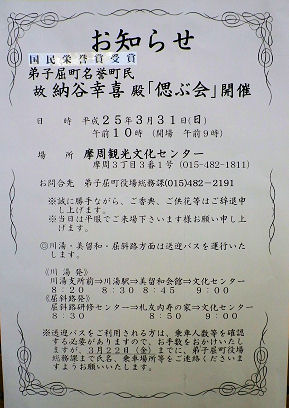 お知らせ
国民栄誉賞受賞
弟子屈町名誉町民
故 納谷幸喜 殿「偲ぶ会」開催
日 時 平成25年3月31日(日)
午前10時 (開場 午前9時)
場 所 摩周観光文化センター
摩周3丁目3番1号 (015-482-1811)
お問合先 弟子屈町役場総務課(015)482-2191
※誠に勝手ながら、ご香典、ご供花等はご辞退申
し上げます。
※当日は平服でご来場下さいます様お願い申し上
げます。
◎川湯・美留和・屈斜路方面は送迎バスを運行いた
します。
《川湯発》
川湯支所前⇒川湯駅⇒美留和会館⇒文化センター
8:20 8:30 8:45 9:00
《屈斜路発》
屈斜路研修センター⇒札友内寿の家⇒文化センター
8:30 8:50 9:00
※送迎バスをご利用される方は、乗車人数等を確認
する必要がありますので、お手数をおかけいたし
ますが、3月22日(金)までに、弟子屈町役場
総務課まで氏名、乗車場所等をご連絡くださいま
すようお願いいたします。